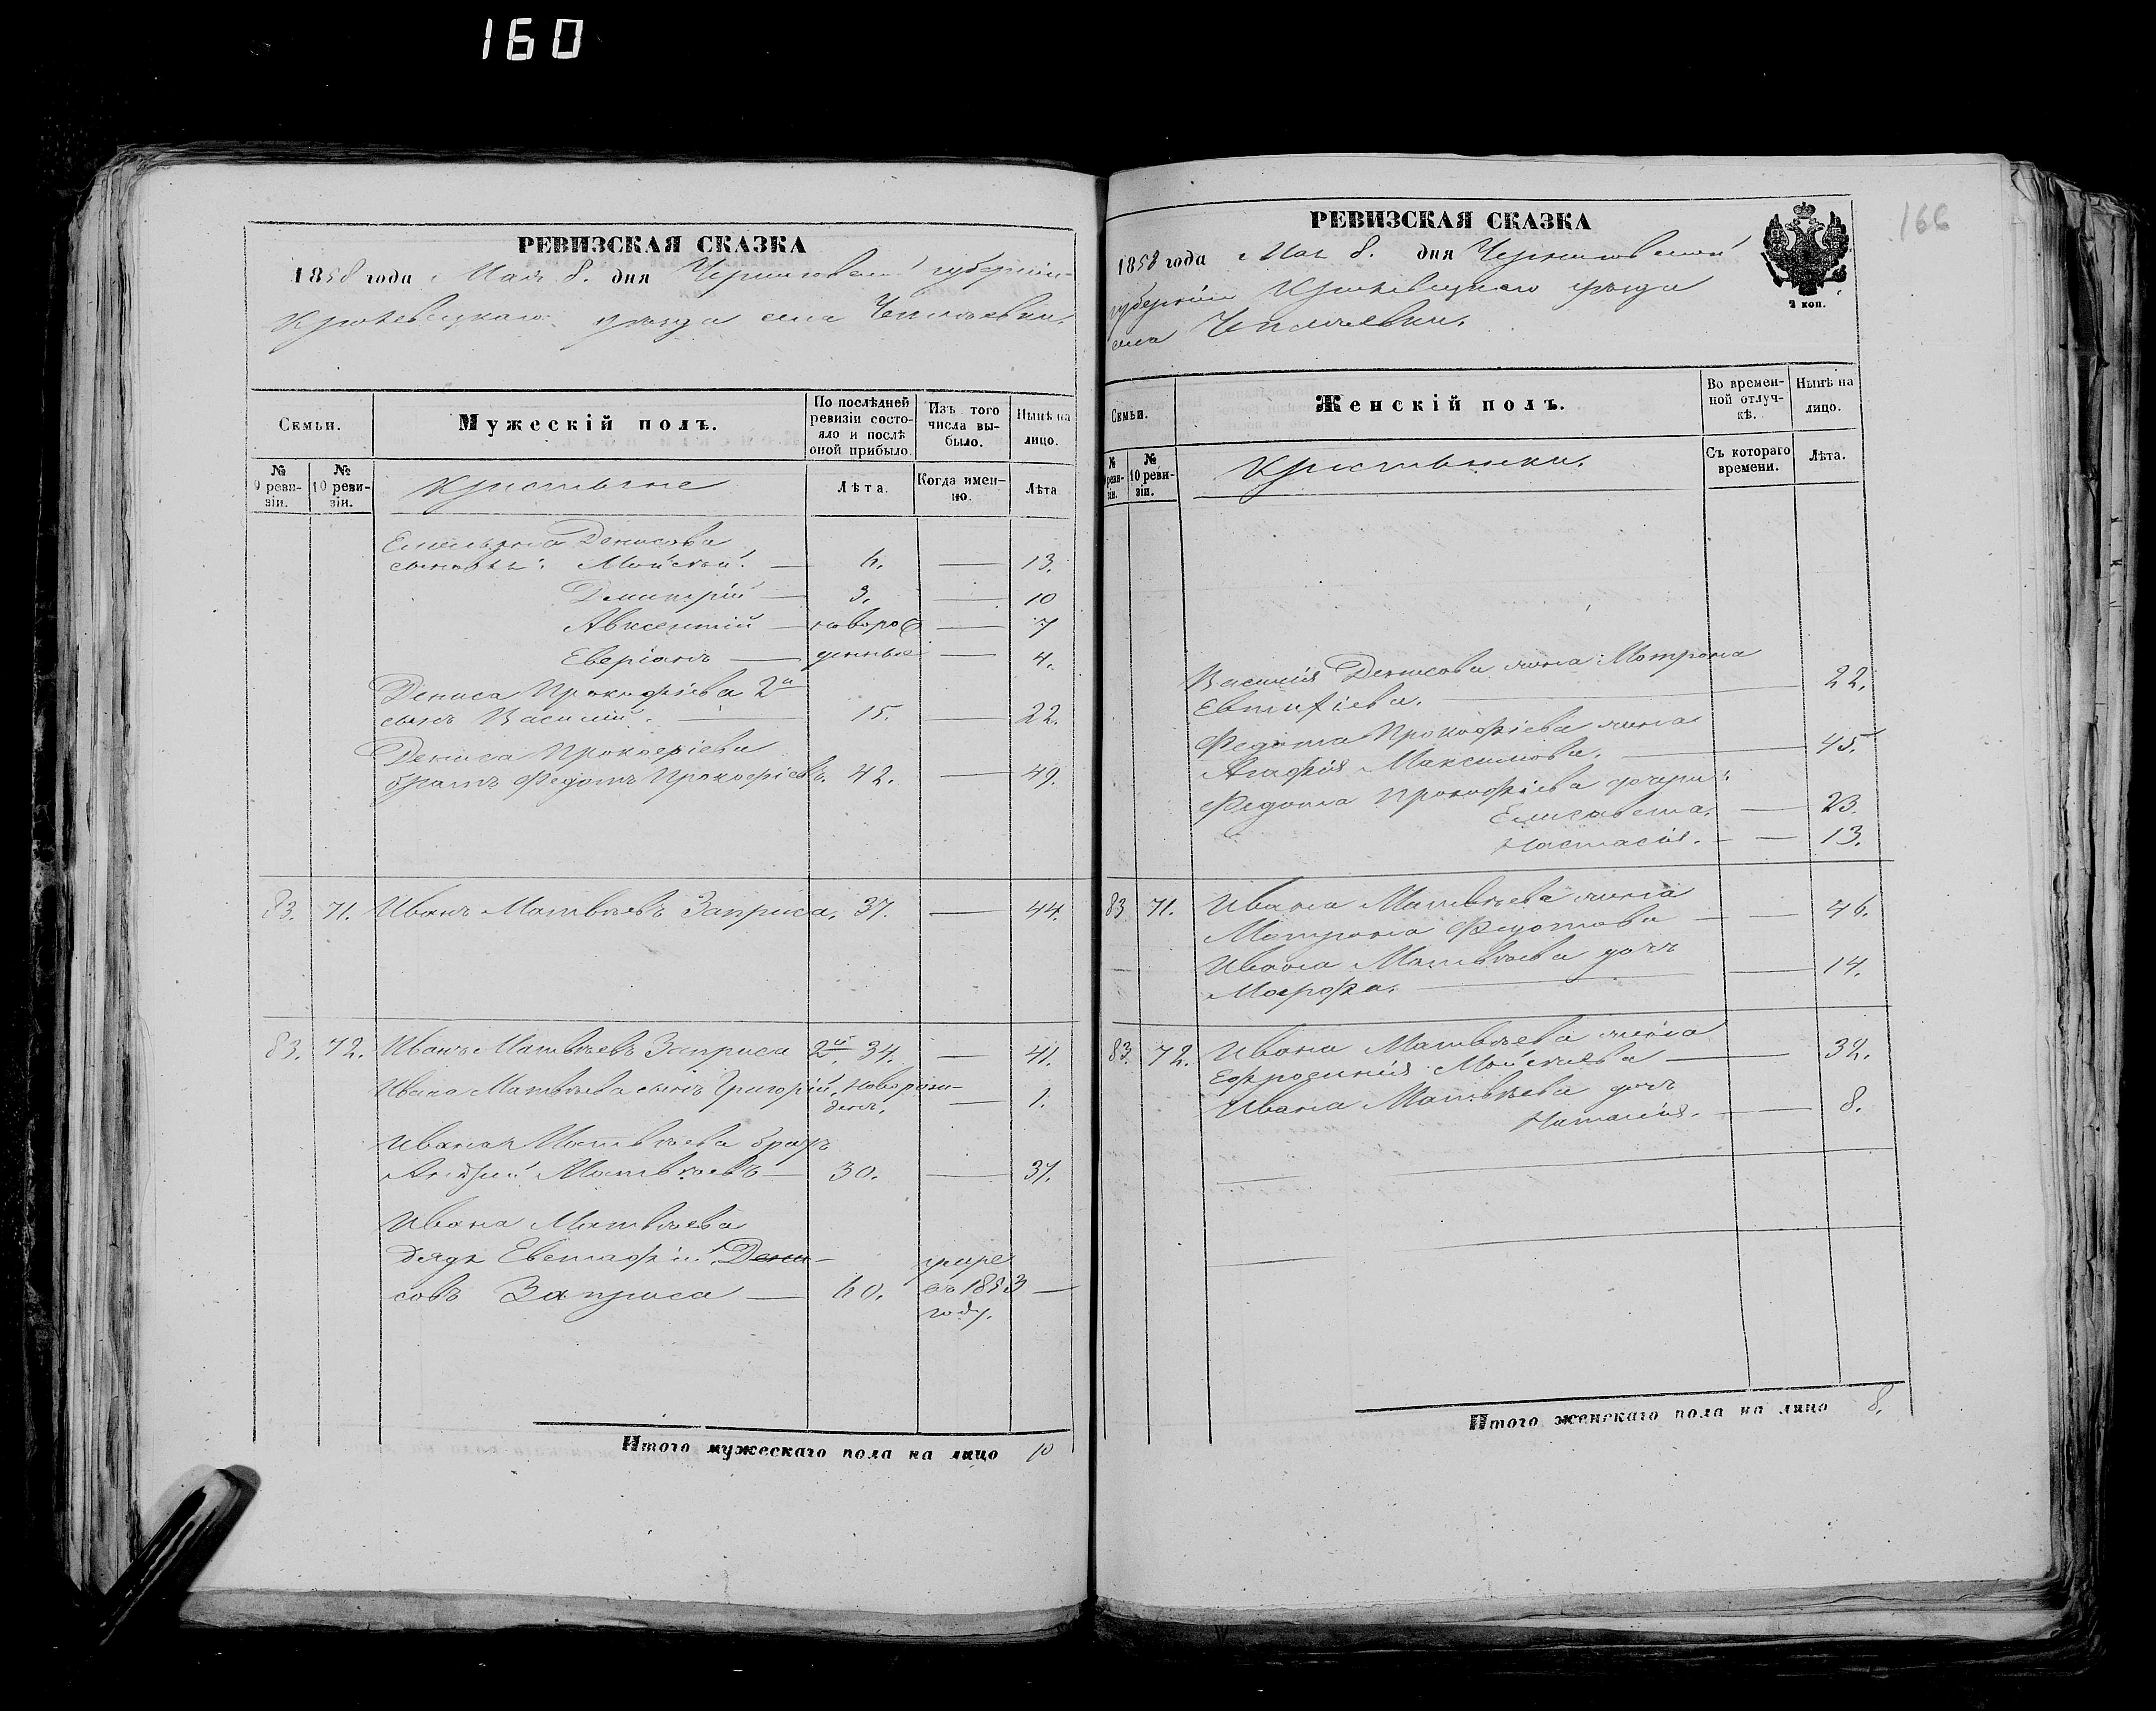 160
РЕВИЗСКАЯ СКАЗКА
1858 года Мая 8. дня Черниговской губерніи
Кролевецкаго уѣзда села Чепліевки.
Семьи.
Мужескій полъ.
По послѣдней ревизіи состояло и послѣ оной прибыло.
Изъ того числа выбыло.
Нынѣ на лицо.
№ 9 ревизіи.
№ 10 ревизіи.
Крестьяне
Лѣта.
Когда именно.
Лѣта
Емельяна Денисова
сыновья: Мойсѣй. — 6. — 13.
Димитрій — 3. — 10
Авксентій — новорож — 7
Еверіанъ — денные — 4.
Дениса Прокофіева 2й
сынъ Василий. — 15. — 22.
Дениса Прокофіева
братъ Федотъ Прокофіевъ. 42. — 49.
83. 71. Иванъ Матвѣевъ Заприса. 37. — 44.
83. 72. Иванъ Матвѣевъ Заприса 2й 34. — 41.
Ивана Матвѣева сынъ Григорій, новорож-
ден. — 1.
Ивана Матвѣева братъ
Андрей Матвѣевъ — 30. — 37.
Ивана Матвѣева
дядя Евстафій Дени-
совъ Заприса — 60. умре въ 1853 году. —
Итого мужескаго пола на лицо 10
166
РЕВИЗСКАЯ СКАЗКА
1858 года Мая 8. дня Черниговской
губерніи Кролевецкаго уѣзда
села Чепліевки.
2 коп.
Семьи.
Женскій полъ.
Во временной отлучкѣ.
Нынѣ на лицо.
№ ревизіи.
№ 10 ревизіи.
Крестьянки.
Съ котораго времени.
Лѣта.
Василія Денисова жена Мотрона
Евтифіева. — 22.
Федота Прокофіева жена
Агафія Максимова. — 45.
Федота Прокофіева дочери:
Елисавета. — 23.
Настасія. — 13.
83 71. Ивана Матвѣева жена
Мотрона Федотова — 46.
Ивана Матвѣева дочь
Марфа. — 14.
83. 72. Ивана Матвѣева жена
Ефросинія Мойсѣева — 32.
Ивана Матвѣева дочь
Наталія. — 8.
Итого женскаго пола на лицо 8.